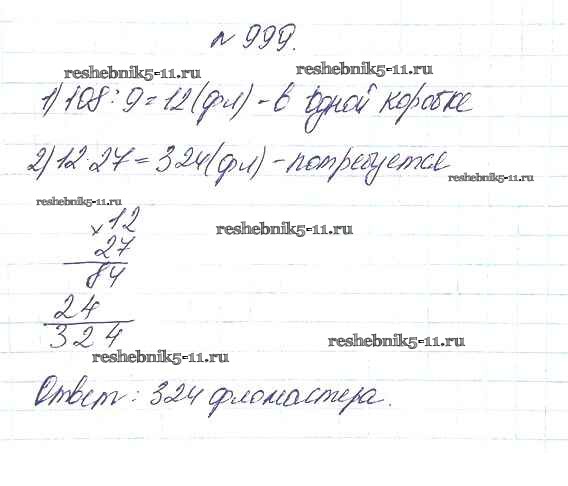 № 999.
reshebnik5-11.ru reshebnik5-11.ru
1) 108 : 9 = 12 (фл) - в одной коробке
2) 12 · 27 = 324 (фл) - потребуется
reshebnik5-11.ru
reshebnik5-11.ru
× 12
27
reshebnik5-11.ru
84
24
324
reshebnik5-11.ru
reshebnik5-11.ru
Ответ: 324 фломастера.